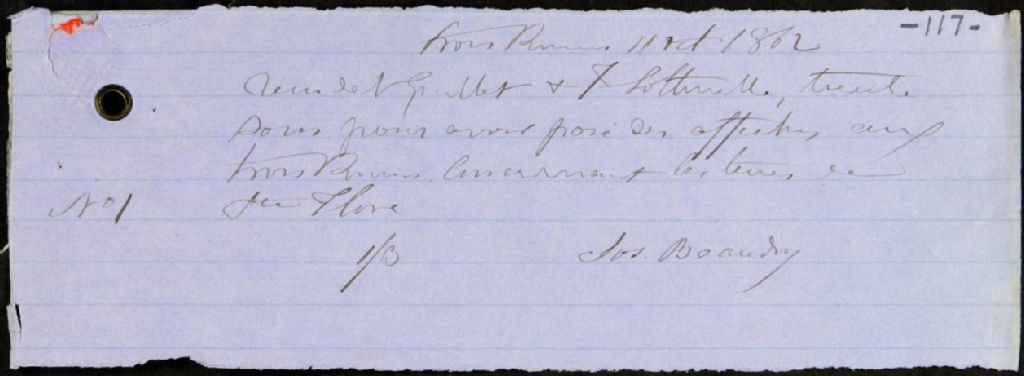 -117-
trois Rivieres 11 oct 1862
Recu de N Guillet & F Lottinville, trente
sous pour avoir posé des affiches aux
trois Rivieres Concernant les terres de
Ste Flore
No 1
1/3 Jos. Beaudry